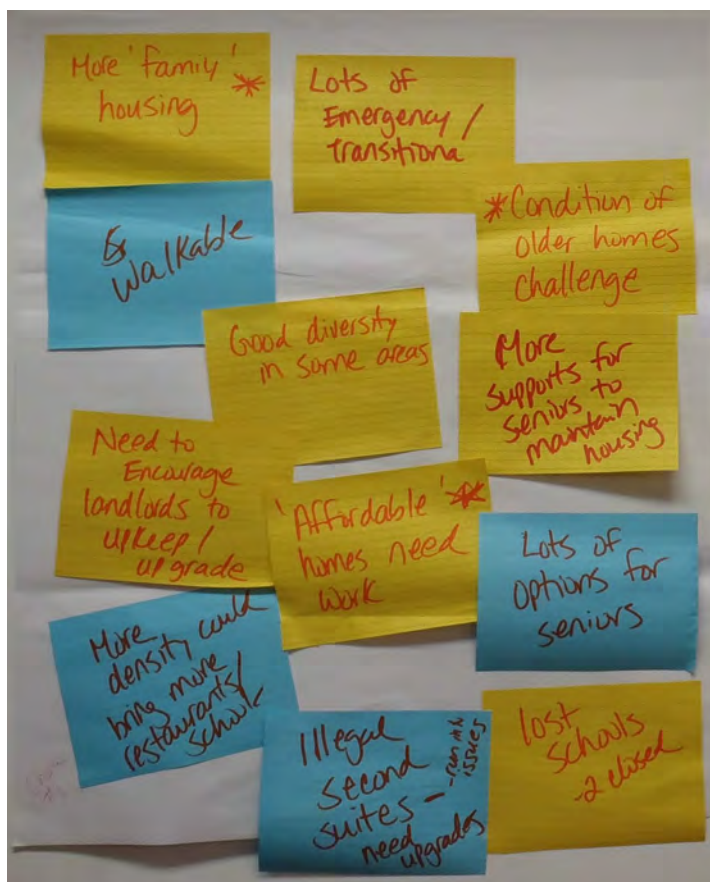 More 'family' *
housing
Lots of
Emergency /
Transitiona
& Walkable
*Condition of
older homes
challenge
Good diversity
in some areas
More
supports for
seniors to
maintain
housing
Need to
Encourage
landlords to
upkeep/
upgrade
'Affordable' *
homes need
work
Lots of
options for
seniors
More
density could
bring more
restaurants/
schools
Illegal
second
suites - run into
issues
need
upgrades
lost
schools
-2 closed